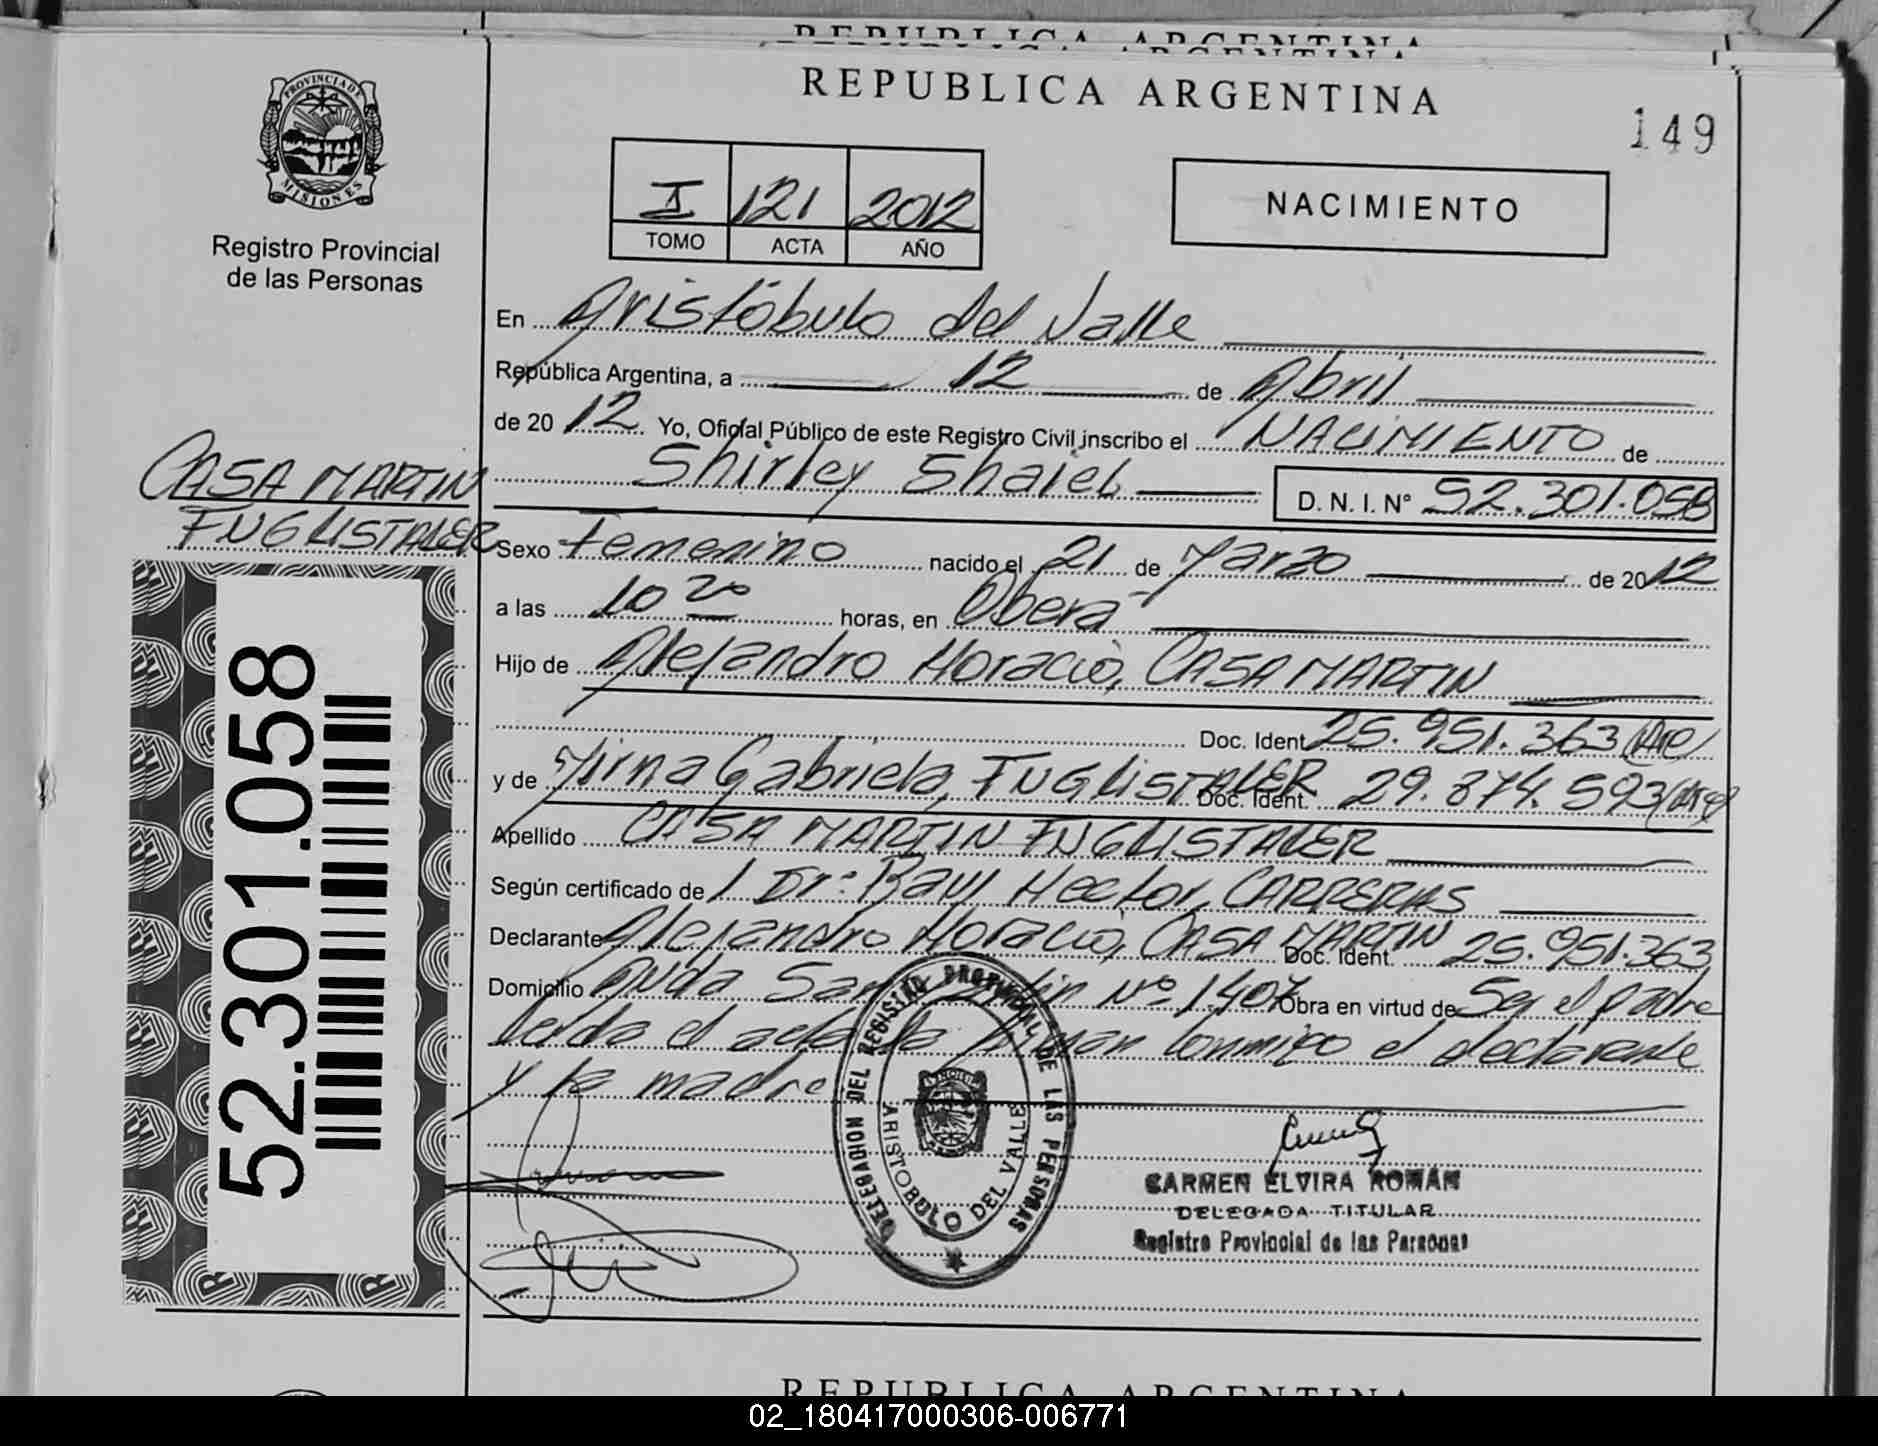 REPUBLICA ARGENTINA
REPUBLICA ARGENTINA
149
PROVINCIA DE
MISIONES
Registro Provincial
de las Personas
I 121 2012
TOMO ACTA AÑO
NACIMIENTO
En Aristóbulo del Valle
República Argentina, a 12 de Abril
de 2012 Yo, Oficial Público de este Registro Civil inscribo el NACIMIENTO de
Shirley Shaiel D. N. I. Nº 52.301.058
CASA MARTIN
FUGLISTALER
Sexo Femenino nacido el 21 de Marzo de 2012
a las 10 20 horas, en Oberá
Hijo de Alejandro Horacio, CASA MARTIN
Doc. Ident. 25.951.363 (Arg)
y de Mirna Gabriela, FUGLISTALER Doc. Ident. 29.874.593 (Arg)
Apellido CASA MARTIN FUGLISTALER
Según certificado de / Dr: Raul Hector, CARRERAS
Declarante Alejandro Horacio, CASA MARTIN Doc. Ident. 25.951.363
Domicilio Avda San Martin Nº 1407 Obra en virtud de Ser el padre
Leida el acta la firman conmigo el declarante
y la madre
52.301.058
DELEGACION DEL REGISTRO PROVINCIAL DE LAS PERSONAS
ARISTOBULO DEL VALLE
CARMEN ELVIRA ROMAN
DELEGADA TITULAR
Registro Provincial de las Personas
REPUBLICA ARGENTINA
02_180417000306-006771